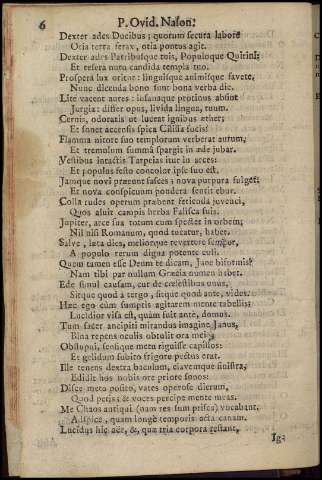 6 P. Ovid. Nason:
Dexter ades Ducibus; quorum secura labore
Otia terra ferax, otia pontus agit.
Dexter ades Patribusque tuis, Populoque Quirini:
Et resera nutu candida templa tuo.
Prospera lux oritur: linguisque animisque favete,
Nunc dicenda bono sunt bona verba die.
Lite vacent aures: insanaque protinus absint
Jurgia: differ opus, livida lingua, tuum.
Cernis, odoratis ut luceat ignibus ether;
Et sonet accensis spica Cilissa focis?
Flamma nitore suo templorum verberat aurum,
Et tremulum summâ spargit in æde jubar.
Vestibus intactis Tarpeias itur in arces:
Et populus festo concolor ipse suo est.
Jamque novi præeunt fasces: nova purpura fulget:
Et nova conspicuum pondera sentit ebur.
Colla rudes operum præbent ferienda juvenci,
Quos aluit campis herba Falisca suis.
Jupiter, arce sua totum cum spectet in orbem;
Nil nisi Romanum, quod tueatur, habet.
Salve, læta dies, meliorque revertere semper,
A populo rerum digna potente coli.
Quem tamen esse Deum te dicam, Jane biformis?
Nam tibi par nullum Græcia numen habet.
Ede simul causam, cur de cælestibus unus,
Sitque quod à tergo, sitque quod ante, vides.
Hæc ego cùm sumptis agitarem mente tabellis;
Lucidior visa est, quàm fuit ante, domus.
Tum sacer ancipiti mirandus imagine Janus,
Bina repens oculis obtulit ora meis.
Obstupui, sensique metu riguisse capillos:
Et gelidum subito frigore pectus erat.
Ille tenens dextra baculum, clavemque sinistra,
Edidit hos nobis ore priore sonos:
Disce metu posito, vates operose dierum,
Quod petis; & voces percipe mente meas.
Me Chaos antiqui (nam res sum prisca) vocabant.
Adspice, quam longè temporis acta canam.
Lucidus hic aër, & quæ tria corpora restant,
Ig-